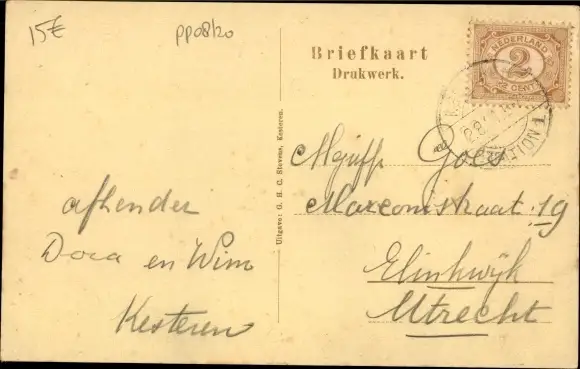 15€
pp08/20
Briefkaart
Drukwerk.
NEDERLAND
2
CENT
STATION 1
Mejuff Goes
Marconistraat 19
Elinkwijk
Utrecht
Uitgave: G. H. C. Stevens, Kesteren.
afhender
Dora en Wim
Kesteren